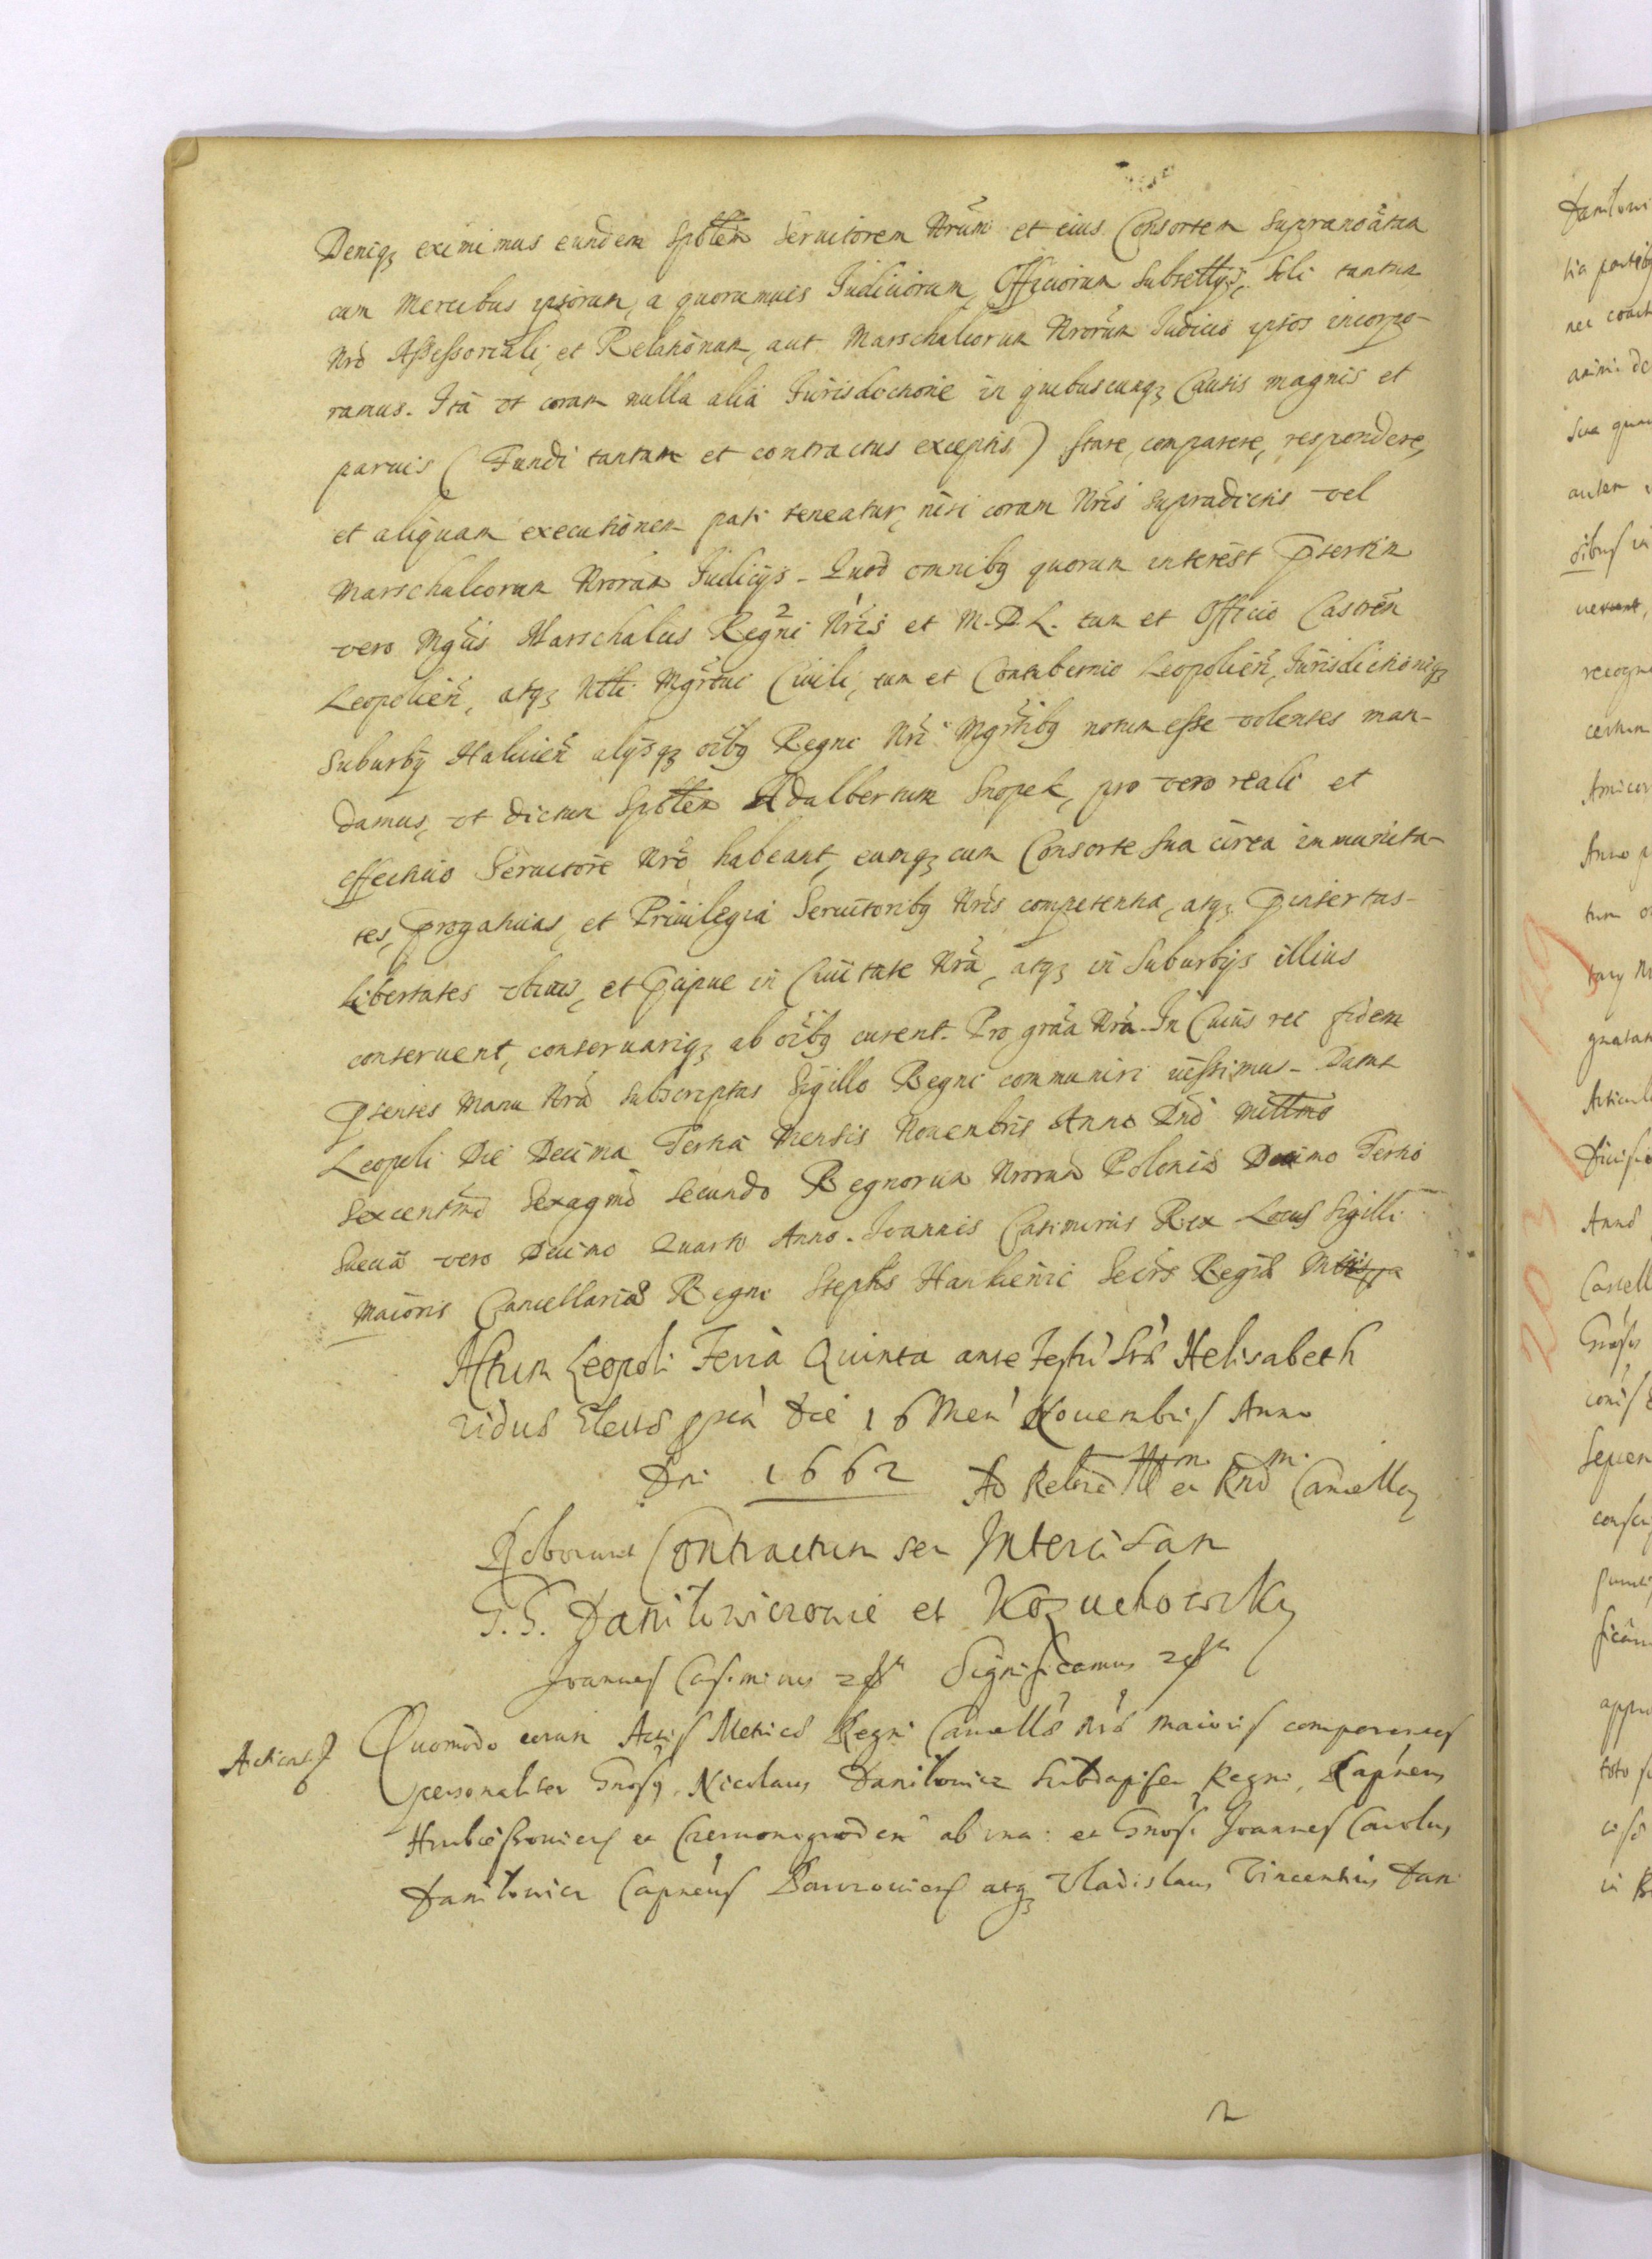 Deniq3 eximimus eundem Spblem Seruitorem Nrum et eius Consortem supranoatam
cum Mercibus ipsorum, a quorumuis Iudiciorum, Officiorum Subsellijs, Soli tantum
Nro Assessoriali, et Relationum, aut Marschalcorum Nrorum Iudicio ipsos incorpo-
ramus. Ita vt coram nulla alia Iurisdictione in quibuscunq3 Causis magnis et
paruis (Fundi tantum et contractus exceptis) stare, comparere, respondere,
et aliquam executionem pati teneatur, nisi coram Nris supradictis vel
Marschalcorum Nrorum Iudicijs. Quod omnibq quorum interest psertim
vero Mgcis Marschalcis Regni Nris et M.D.L. tum et Officio Castren
Leopolien, atq3 Nbli Mgrtui Ciuili, tum et Contubernio Leopolien, Iurisdictioniq3
Suburbij Halicien alijsq3 oibq Regni Nri Mgrtibq notum esse volentes man-
damus, vt dictum Spblem Adalbertum Snopek, pro vero reali et
effectiuo Seruitore Nro habeant, eumq3 cum Consorte sua circa immunita-
tes, progatiuas, et Priuilegia Seruitoribq Nris competentia, atq3 pinsertas
Libertates vbiuis, et pcipue in Ciuitate Nra, atq3 in Suburbijs illius
conseruent, conseruariq3 ab oibq curent. Pro gra Nra. In Cuius rei fidem
psentes Manu Nra subscriptas Sigillo Regni communiri iussimus. Datum
Leopoli Die Decima Tertia Mensis Nouembris Anno Dni Millmo
Sexcentmo Sexagmo Secundo Regnorum Nrorum Poloniae Decimo Tertio
Sueciae vero Decimo Quarto Anno. Ioannis Casimirus Rex Locus Sigilli
Maioris Cancellariae Regni Stephs Hankieuic Secrs Regiae Mttis
Actum Leopoli Feria Quinta ante Festu Stae Helisabeth
Viduae Electae pxia Die 16 Men Nouembris Anno
Dni 1662 Ad Relone Illmi et Rndmi Cancell
Roborant Contractum seu Intercisam
G.G. Daniłowiczowie et Kozuchowsky
Joannes Casimirus Significamus
Acticat Quomodo coram Actis Metrices Regni Cancellae Nrae maioris comparentes
personaliter Gnosq, Nicolaus Daniłowicz Subdapifer Regni, Capneus
Hrubieszouien et Czeruonogroden ab vna: et Gnosi Joannes Carolus
Daniłowicz Capneus Parczouien atq3 Vladislaus Vincentius Dani